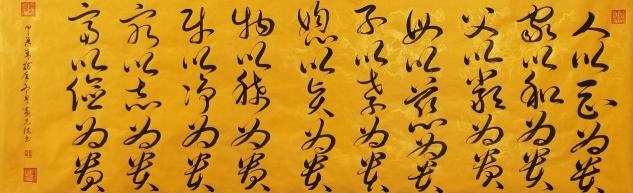 人以正为贵
家以和为贵
父以严为贵
母以慈为贵
子以孝为贵
媳以贞为贵
物以稀为贵
财以净为贵
穷以志为贵
富以俭为贵